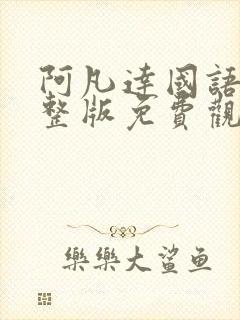 阿凡達國語
整版免費觀
樂樂大鯊鱼